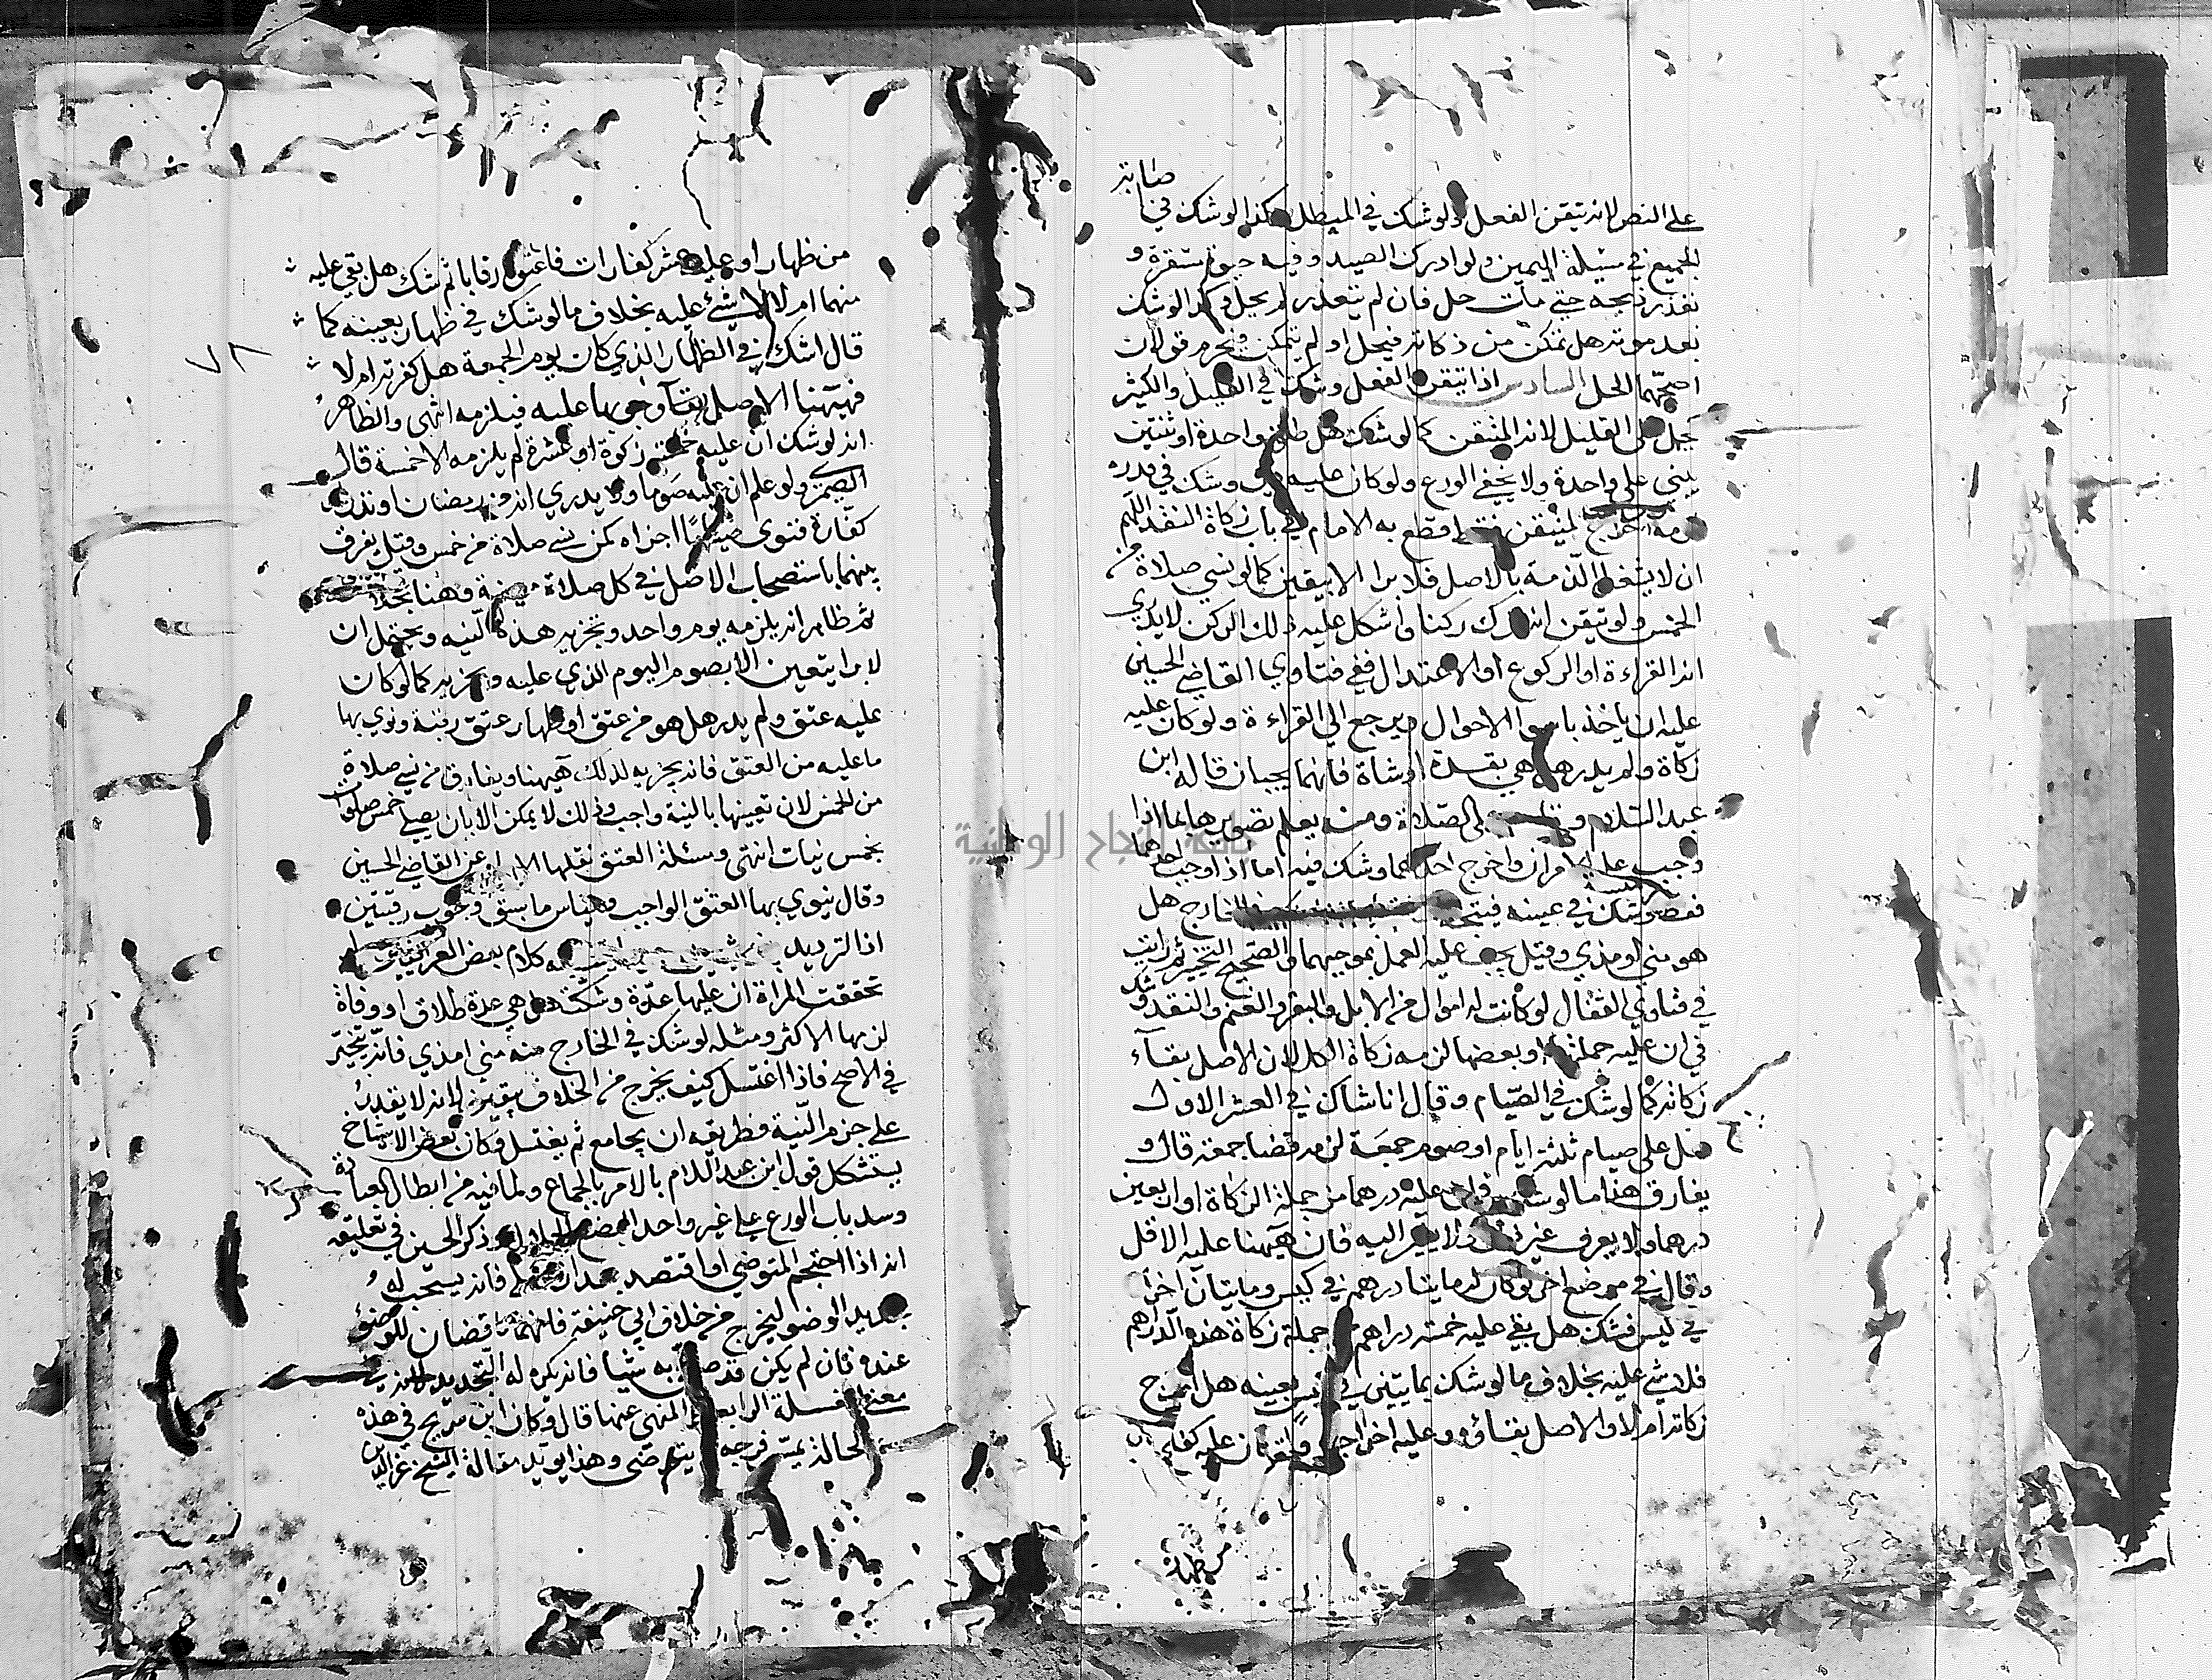 صابته
على النص لانه تيقن الفعل ولو شك في المبطل وكذا لو شك في
الجميع في مسئلة اليمين ولو ادرك الصيد وفيه حيوة مستقرة و
تعذر ذبحه حتى مات حل فان لم يتعذر لم يحل وكذا لو شك
بعد موته هل تمكن من ذكاته فيحل او لم يتمكن فيحرم قولان
اصحهما الحل السادس اذا تيقن الفعل وشك في القليل والكثير
حمل على القليل لانه المتيقن كما لو شك هل طلق واحدة او ثنتين
يبني على واحدة ولا يخفى الورع ولو كان عليه دين وشك في قدره
لزمه اخراج المتيقن قطع به الامام في باب زكاة النقد اللهم
ان لا يشغل الذمة بالاصل فلا يبرا الا بيقين كما لو نسي صلاة من
الخمس ولو تيقن انه ترك ركنا واشكل عليه ذلك الركن لا يدري
انه القراءة او الركوع او الاعتدال ففي فتاوي القاضي الحسين
عليه ان ياخذ باسوا الاحوال ويرجع الى القراءة ولو كان عليه
زكاة ولم يدر هل هي بقرة او شاة فانهما يجبان قاله ابن
عبد السلام و على الصلاة ومنه يعلم تصويرها بما اذا
وجب عليه امران واخرج احدهما وشك فيه اما اذا وجب احدهما
فقط وشك في عينه فيتجه الخارج هل
هو مني او مذي وقيل يجب عليه العمل بموجبهما والصحيح التخيير ثم رايت
في فتاوي القفال لو كانت له اموال من الابل والبقر والغنم والنقد وشك
في ان عليه جملتها او بعضها لزمه زكاة الكل لان الاصل بقآء
زكاته كما لو شك في الصيام وقال انا شاك في العشر الاول
هل علي صيام ثلثة ايام او صوم جمعة لزمه قضا جمعة قال و
يفارق هذا ما لو شك في ان عليه درهما من جملة الزكاة او اربعين
درهما ولا يعرف غير ذلك ولا يشير اليه فان هيهنا عليه الاقل
وقال في موضع اخر لو كان له مايتا درهم في كيس ومايتان اخرا
في كيس فشك هل بقي عليه خمسة دراهم من جملة زكاة هذه الدراهم
فلا شي عليه بخلاف ما لو شك بمايتين في كيس بعينه هل اخرج
زكاته ام لا والاصل بقاؤه وعليه اخراجه ولو تيقن ان عليه كفارتين
من ظهار
من ظهار او عليه عشر كفارات فاعتق رقابا ثم شك هل بقي عليه
منها ام لا لا شئ عليه بخلاف ما لو شك في ظهار بعينه كما
قال اشك في الظهار الذي كان يوم الجمعة هل كفرته ام لا
فهيهنا الاصل بقآ وجوبها عليه فيلزمه انتهى والظاهر
انه لو شك ان عليه خمسة زكوة او عشرة لم يلزمه الا خمسة قال
الصيمري ولو علم ان عليه صوما ولا يدري انه من رمضان او نذر او
كفارة فنوى صياما اجزاه كمن نسي صلاة من خمس وقيل يفرق
بينهما باستصحاب الاصل في كل صلاة معينة وهنا
ثم ظاهر انه يلزمه يوم واحد وتجزيه هذه النيه ويحتمل ان
لا يبرا يتعين الا بصوم اليوم الذي عليه ويجزيه كما لو كان
عليه عتق ولم يدر هل هو من عتق او ظهار عتق رقبة ونوي بها
ما عليه من العتق فانه يجزيه لذلك هيهنا ويفارق من نسي صلاة
من الخمس لان تعيينها بالنية واجب وذلك لا يمكن الا بان يصلي خمس صلوات
بخمس نيات انتهى ومسئلة العتق نقلها الامام عن القاضي الحسين
وقال ينوي بها العتق الواجب وقياس ما سبق وجوب رقبتين
اذا الترديد كلام بعض العراقيين لو
تحققت المراة ان عليها عدة وشكت هل هي عدة طلاق او وفاة
لزمها الاكثر ومثله لو شك في الخارج منه مني ام مذي فانه يتخير
في الاصح فاذا اغتسل كيف يخرج من الخلاف بيقين لانه لا يقدر
على جزم النية فطريقه ان يجامع ثم يغتسل وكان بعض الاشياخ
يستشكل قول ابن عبد السلام بالامر بالجماع ولما فيه من ابطال العبادة
وسد باب الورع على غير واحد البضع الحلال وذكر الحسين في تعليقه
انه اذا احتجم المتوضي او اقتصد بعد ان فانه يستحب له
تجديد الوضو ليخرج من خلاف ابي حنيفة فانهما ناقضان للوضؤ
عنده فان لم يكن قد صلى به شيا فانه يكره له التجديد لانه في
معنى الغسلة الرابعة المنهي عنها قال وكان ابن سريج في هذه
الحالة يمس فرجه ثم يتوضى وهذا يويد مقالة الشيخ عز الدين
٧٨
جامعة النجاح الوطنية